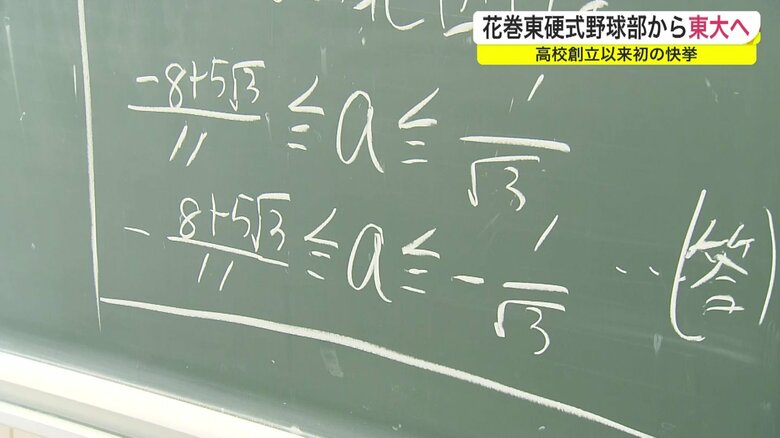 花巻東硬式野球部から東大へ
高校創立以来初の快挙
(-8+5√3)/11 ≦ a ≦ 1/√3
-(8+5√3)/11 ≦ a ≦ -1/√3 …(答)